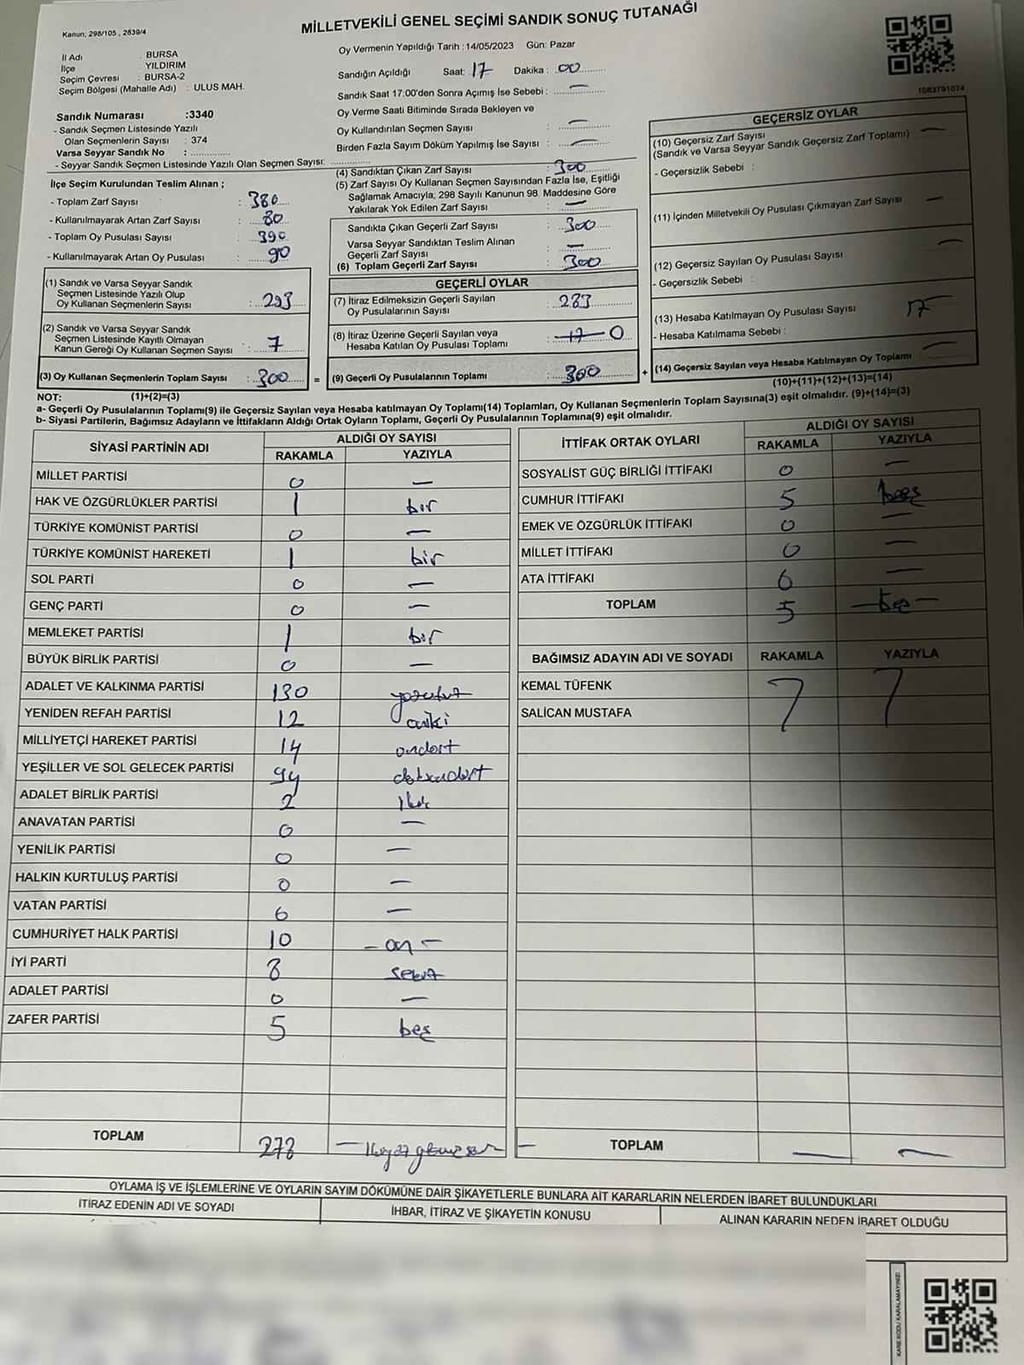 MİLLETVEKİLİ GENEL SEÇİMİ SANDIK SONUÇ TUTANAĞI
Kanun, 298/105 , 2839/4
İl Adı : BURSA
İlçe : YILDIRIM
Seçim Çevresi : BURSA-2
Seçim Bölgesi (Mahalle Adı) : ULUS MAH.
Sandık Numarası :3340
- Sandık Seçmen Listesinde Yazılı
Olan Seçmenlerin Sayısı : 374
Varsa Seyyar Sandık No :
- Seyyar Sandık Seçmen Listesinde Yazılı Olan Seçmen Sayısı:
Oy Vermenin Yapıldığı Tarih :14/05/2023 Gün: Pazar
Sandığın Açıldığı Saat: 17 Dakika : 00
Sandık Saat 17:00'den Sonra Açımış İse Sebebi : —
Oy Verme Saati Bitiminde Sırada Bekleyen ve
Oy Kullandırılan Seçmen Sayısı : —
Birden Fazla Sayım Döküm Yapılmış İse Sayısı : —
1083791074
İlçe Seçim Kurulundan Teslim Alınan ;
- Toplam Zarf Sayısı : 380
- Kullanılmayarak Artan Zarf Sayısı : 80
- Toplam Oy Pusulası Sayısı : 390
- Kullanılmayarak Artan Oy Pusulası : 90
(1) Sandık ve Varsa Seyyar Sandık
Seçmen Listesinde Yazılı Olup
Oy Kullanan Seçmenlerin Sayısı : 293
(2) Sandık ve Varsa Seyyar Sandık
Seçmen Listesinde Kayıtlı Olmayan
Kanun Gereği Oy Kullanan Seçmen Sayısı : 7
(3) Oy Kullanan Seçmenlerin Toplam Sayısı : 300 =
(4) Sandıktan Çıkan Zarf Sayısı : 300
(5) Zarf Sayısı Oy Kullanan Seçmen Sayısından Fazla İse, Eşitliği
Sağlamak Amacıyla, 298 Sayılı Kanunun 98. Maddesine Göre
Yakılarak Yok Edilen Zarf Sayısı : —
Sandıkta Çıkan Geçerli Zarf Sayısı : 300
Varsa Seyyar Sandıktan Teslim Alınan
Geçerli Zarf Sayısı : —
(6) Toplam Geçerli Zarf Sayısı : 300
GEÇERLİ OYLAR
(7) İtiraz Edilmeksizin Geçerli Sayılan
Oy Pusulalarının Sayısı : 283
(8) İtiraz Üzerine Geçerli Sayılan veya
Hesaba Katılan Oy Pusulası Toplamı : 17 0
(9) Geçerli Oy Pusulalarının Toplamı : 300 +
GEÇERSİZ OYLAR
(10) Geçersiz Zarf Sayısı
(Sandık ve Varsa Seyyar Sandık Geçersiz Zarf Toplamı) —
- Geçersizlik Sebebi :
(11) İçinden Milletvekili Oy Pusulası Çıkmayan Zarf Sayısı —
(12) Geçersiz Sayılan Oy Pusulası Sayısı —
- Geçersizlik Sebebi :
(13) Hesaba Katılmayan Oy Pusulası Sayısı 17
- Hesaba Katılmama Sebebi :
(14) Geçersiz Sayılan veya Hesaba Katılmayan Oy Toplamı —
NOT: (1)+(2)=(3) (10)+(11)+(12)+(13)=(14)
a- Geçerli Oy Pusulalarının Toplamı(9) ile Geçersiz Sayılan veya Hesaba katılmayan Oy Toplamı(14) Toplamları, Oy Kullanan Seçmenlerin Toplam Sayısına(3) eşit olmalıdır. (9)+(14)=(3)
b- Siyasi Partilerin, Bağımsız Adayların ve İttifakların Aldığı Ortak Oyların Toplamı, Geçerli Oy Pusulalarının Toplamına(9) eşit olmalıdır.
SİYASİ PARTİNİN ADI ALDIĞI OY SAYISI
RAKAMLA YAZIYLA
MİLLET PARTİSİ 0 —
HAK VE ÖZGÜRLÜKLER PARTİSİ 1 bir
TÜRKİYE KOMÜNİST PARTİSİ 0 —
TÜRKİYE KOMÜNİST HAREKETİ 1 bir
SOL PARTİ 0 —
GENÇ PARTİ 0 —
MEMLEKET PARTİSİ 1 bir
BÜYÜK BİRLİK PARTİSİ 0 —
ADALET VE KALKINMA PARTİSİ 130 yüzotuz
YENİDEN REFAH PARTİSİ 12 oniki
MİLLİYETÇİ HAREKET PARTİSİ 14 ondört
YEŞİLLER VE SOL GELECEK PARTİSİ 94 doksandört
ADALET BİRLİK PARTİSİ 2 iki
ANAVATAN PARTİSİ 0 —
YENİLİK PARTİSİ 0 —
HALKIN KURTULUŞ PARTİSİ 0 —
VATAN PARTİSİ 0 —
CUMHURİYET HALK PARTİSİ 10 - on -
İYİ PARTİ 8 sekiz
ADALET PARTİSİ 0 —
ZAFER PARTİSİ 5 beş
TOPLAM 278
İTTİFAK ORTAK OYLARI ALDIĞI OY SAYISI
RAKAMLA YAZIYLA
SOSYALİST GÜÇ BİRLİĞİ İTTİFAKI 0 —
CUMHUR İTTİFAKI 5 beş
EMEK VE ÖZGÜRLÜK İTTİFAKI 0 —
MİLLET İTTİFAKI 0 —
ATA İTTİFAKI 0 —
TOPLAM 5 - beş -
BAĞIMSIZ ADAYIN ADI VE SOYADI RAKAMLA YAZIYLA
KEMAL TÜFENK
SALİCAN MUSTAFA
TOPLAM — —
OYLAMA İŞ VE İŞLEMLERİNE VE OYLARIN SAYIM DÖKÜMÜNE DAİR ŞİKAYETLERLE BUNLARA AİT KARARLARIN NELERDEN İBARET BULUNDUKLARI
İTİRAZ EDENİN ADI VE SOYADI İHBAR, İTİRAZ VE ŞİKAYETİN KONUSU ALINAN KARARIN NEDEN İBARET OLDUĞU
KARE KODU KARALAMAYINIZ!